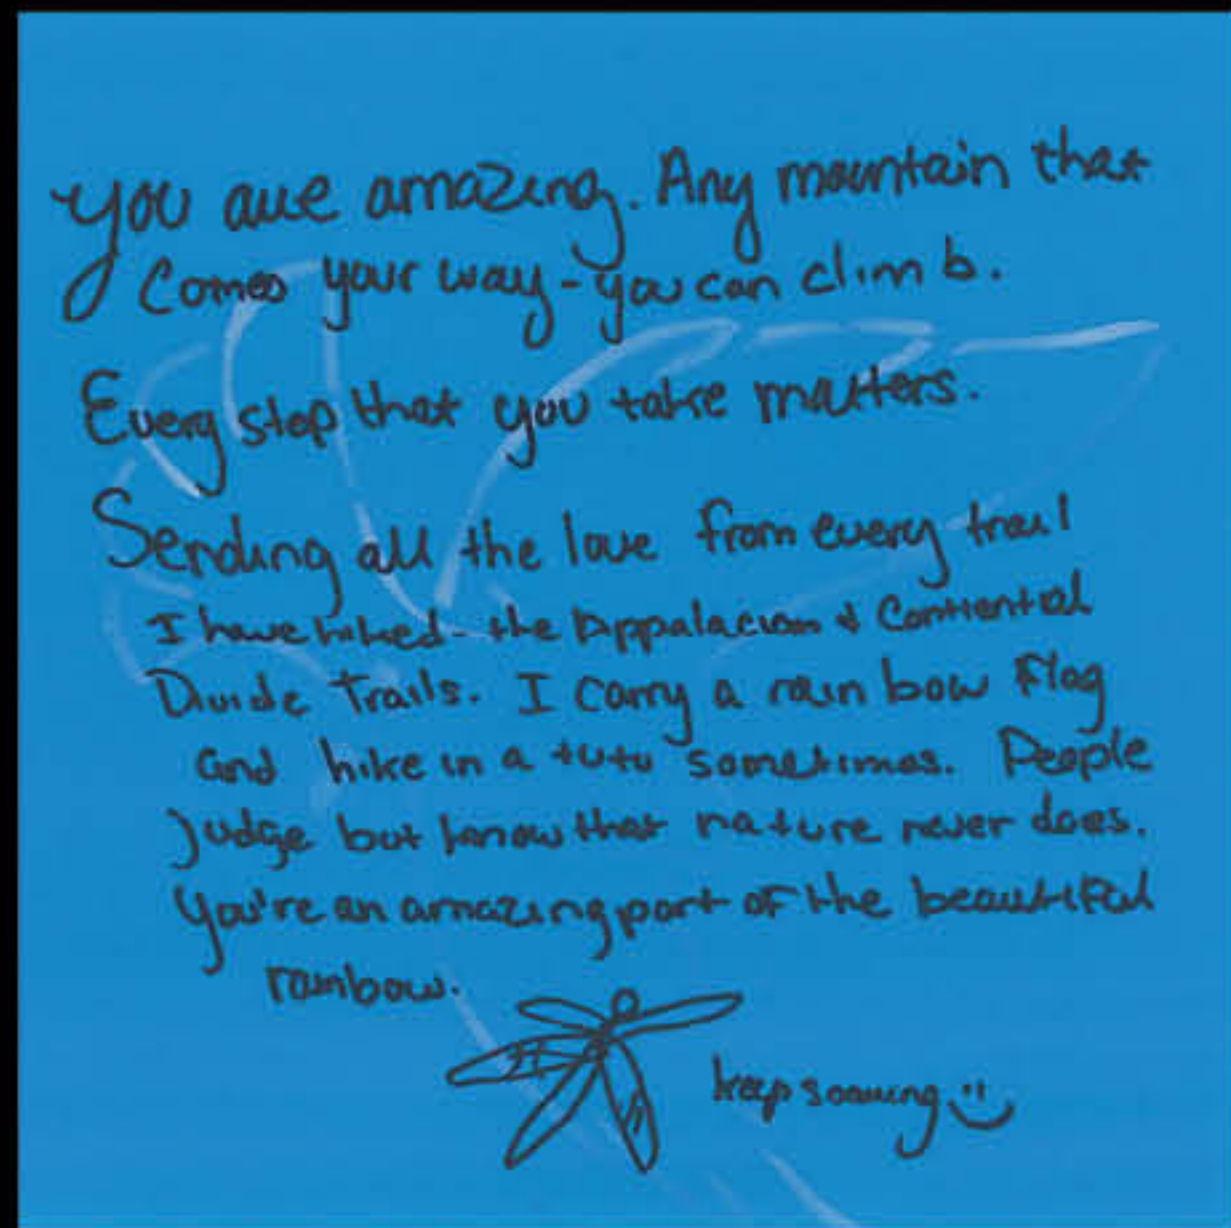 you are amazing. Any mountain that
Comes your way - you can climb.
Every step that you take matters.
Sending all the love from every trail
I have hiked - the Appalacian & Contiental
Divide Trails. I carry a rainbow flag
and hike in a tutu sometimes. People
judge but know that nature never does.
You're an amazing part of the beautiful
rainbow.
keep soaring